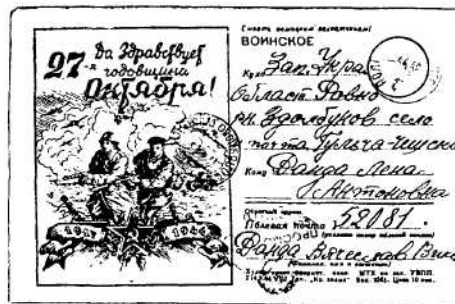 27-я
Да Здравствует
годовщина
Октября!
1917 1944
Смерть немецким оккупантам!
ВОИНСКОЕ
Куда Зап. Укра
Област Ровно
рн. Здолбунов село
почта Гульча-Чешска
Кому Фанда Лена
Антоновна
Обратный адрес:
Полевая почта 52081.
Фанда Вячеслав